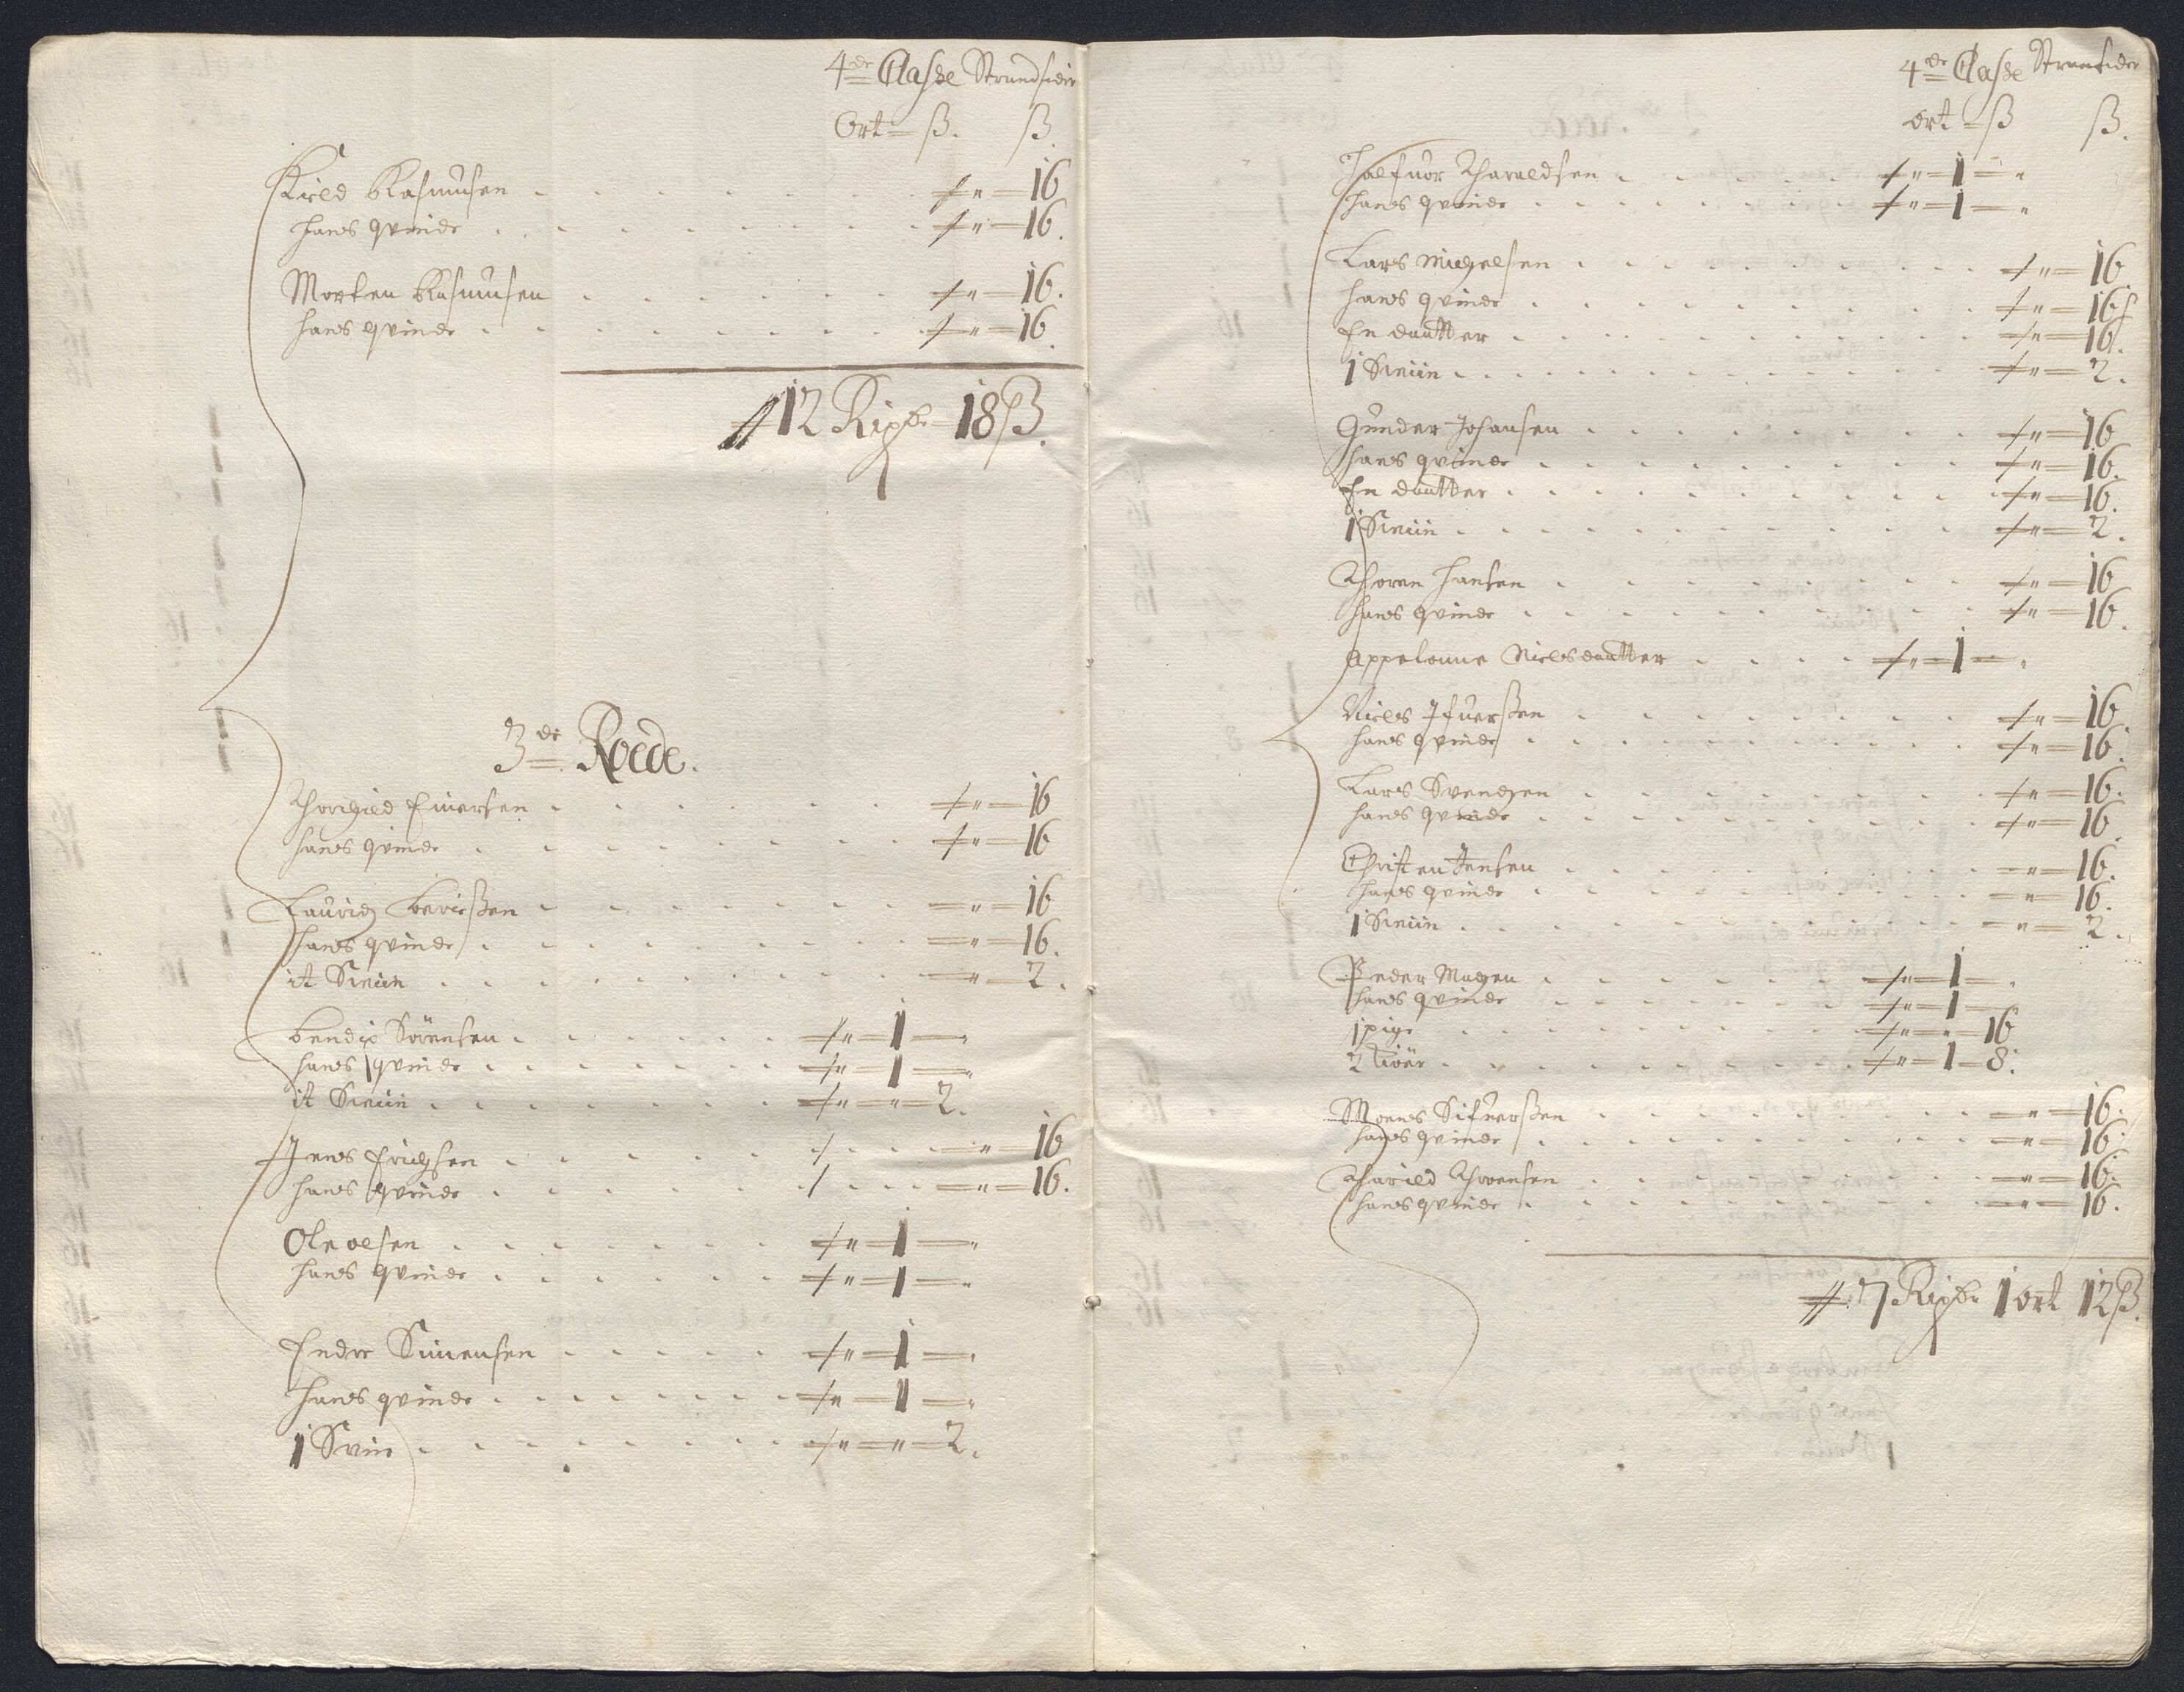 4de Classe Strandsider
Ort = ß. ß
Kield Rasmusen . . . . " — 16
hans qvinde . . . . " — 16.
Morten Rasmusen . . . . " — 16.
hans qvinde . . . . " — 16.
12 Rixdr 18 ß.
3de Roede.
Thorgied Einersen . . . . " — 16
hans qvinde . . . . " — 16
Lauridz . . . . " — 16
hans qvinde . . . . " — 16.
it Sviin . . . . " — 2.
bendix Sörensen . . . . " — 1 — "
hans qvinde . . . . " — 1 — "
it Sviin . . . . " — " — 2.
Jens Erichsen . . . . " — 16
hans qvinde . . . . " — 16.
Ole olsen . . . . " — 1 — "
hans qvinde . . . . " — 1 — "
Endre Simensen . . . . " — 1 — "
hans qvinde . . . . " — 1 — "
1 Sviin . . . . " — " — 2.
4de Classe Strandsider
ort = ß ß.
Halfuor Tharaldsen . . . . " — 1 — "
hans qvinde . . . . " — 1 — "
Lars Michelsen . . . . " — 16
hans qvinde . . . . " — 16
En daatter . . . . " — 16.
1 Sviin . . . . " — 2.
Gunder Johansen . . . . " — 16
hans qvinde . . . . " — 16.
En daatter . . . . " — 16.
1 Sviin . . . . " — 2.
Thoren hansen . . . . " — 16
hans qvinde . . . . " — 16.
Appelonne Nielsdaatter . . . . " — 1 — "
Niels Ifuerßen . . . . " — 16
hans qvinde . . . . " — 16.
Lars Svendsen . . . . " — 16.
hans qvinde . . . . " — 16.
Christen Jensen . . . . " — 16.
hans qvinde . . . . " — 16.
1 Sviin . . . . " — 2.
Peder Magen . . . . " — 1 — "
hans qvinde . . . . " — 1 —
1 pige . . . . " — " — 16
2 Kiöer . . . . " — 1 — 8.
Moens Sifuerßen . . . . " — 16.
hans qvinde . . . . " — 16.
Tharield . . . . " — 16.
hans qvinde . . . . " — 16.
17 Rixdr 1 ort 12 ß.